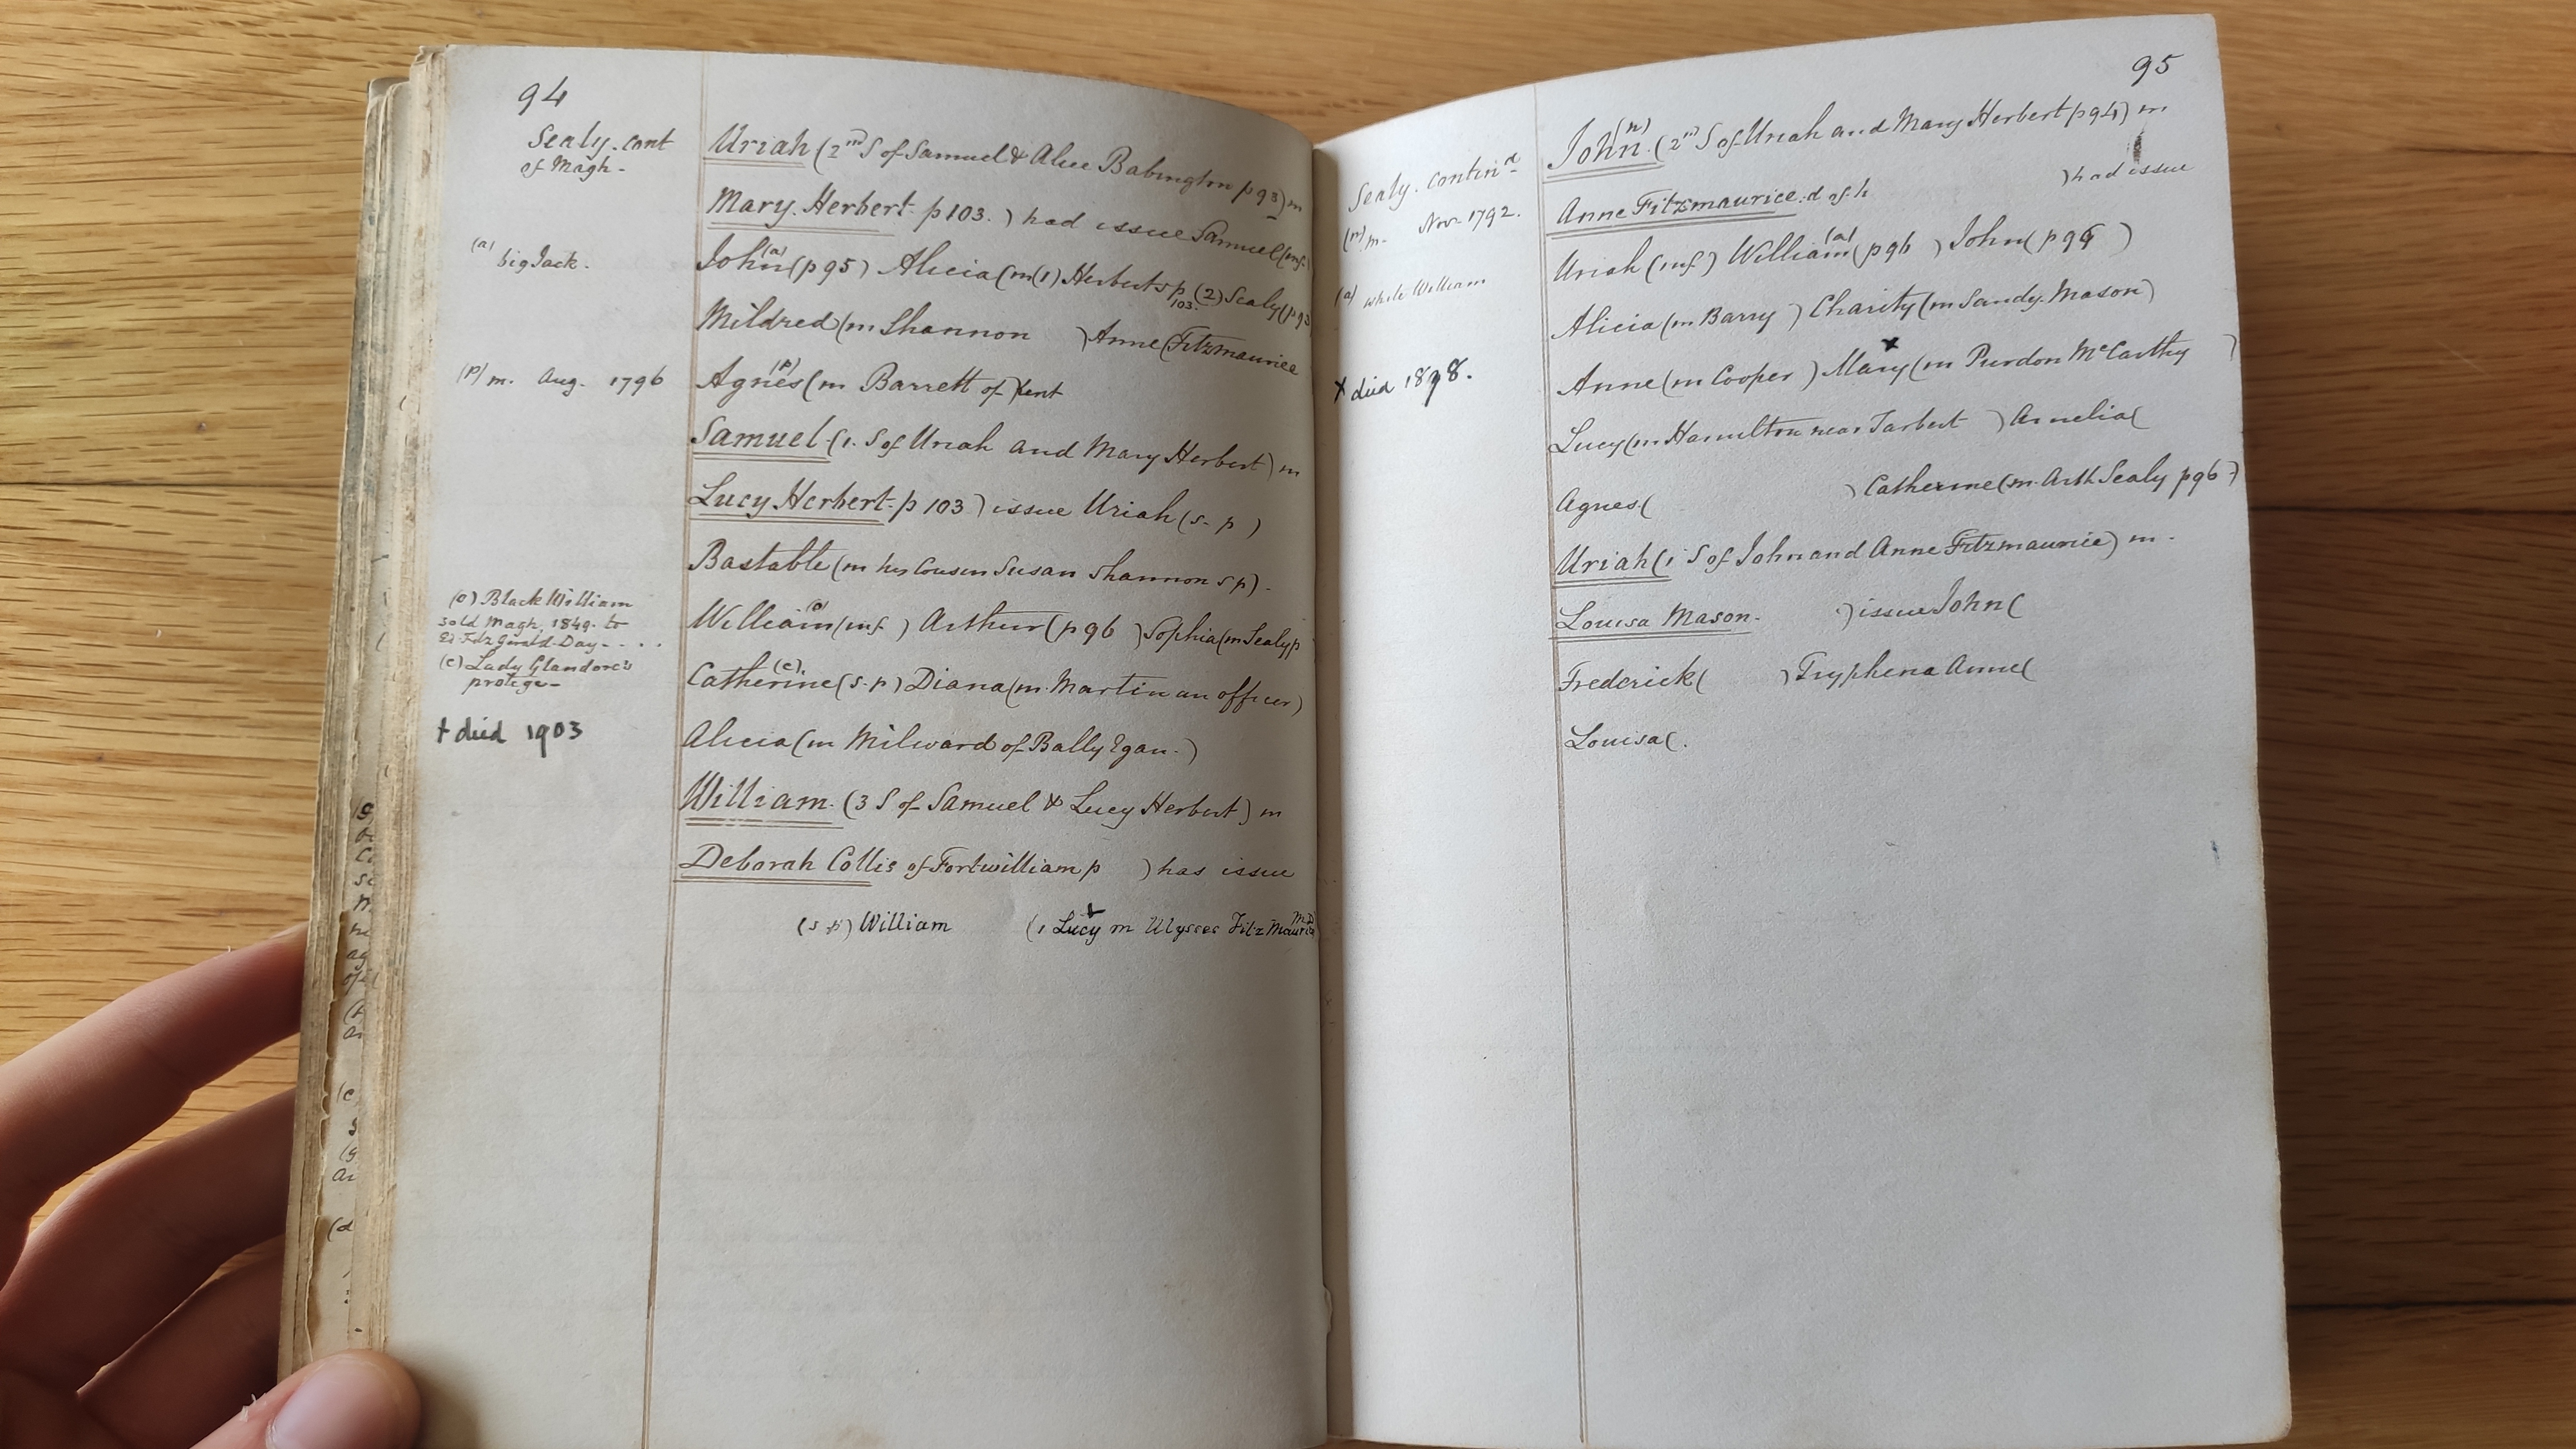 94
Sealy. cont
of Magh-
Uriah (2nd S of Samuel & Alice Babington p 93) m
Mary. Herbert. p 103. ) had issue Samuel (inf.
(a) big Jack.
John(a) (p 95) Alicia (m (1) Herbert s p 103. (2) Sealy (p 93
Mildred (m Shannon ) Anne (Fitzmaurice
(p) m. Aug. 1796
Agnes(p) (m Barrett of Kent
Samuel (1. S of Uriah and Mary Herbert) m
Lucy Herbert. p 103 ) issue Uriah (s. p )
Bastable (m his Cousin Susan Shannon s p).
(o) Black William
sold Magh, 1849. to
Ed FitzGerald Day- . . .
William(o) (inf. ) Arthur (p 96 ) Sophia (m Sealy p
(c) Lady Glandore's
protege-
Catherine(c). (s. p) Diana (m. Martin an officer)
+ died 1903
Alicia (m Milward of Bally Egan. )
William. (3 S of Samuel & Lucy Herbert) m
Deborah Collis of Fortwilliam p ) has issue
(s p) William (1 Lucy + m Ulysses FitzMaurice M.D
95
Sealy. Contin d
John(n). (2nd S of Uriah and Mary Herbert p 94) m
(n) m. Nov. 1792.
Anne Fitzmaurice. d of h ) had issue
(a) white William
Uriah (inf. ) William(a) (p 96 ) John (p 96 )
Alicia (m Barry ) Charity (m Sandy. Mason)
x died 1898.
Anne (m Cooper ) Mary x (m Purdon McCarthy )
Lucy (m Hamilton near Tarbert ) Amelia (
Agnes ( ) Catherine (m. Arth Sealy p 96 )
Uriah (1 S of John and Anne Fitzmaurice) m -
Louisa Mason. ) issue John (
Frederick ( ) Tryphena Anne (
Louisa (.